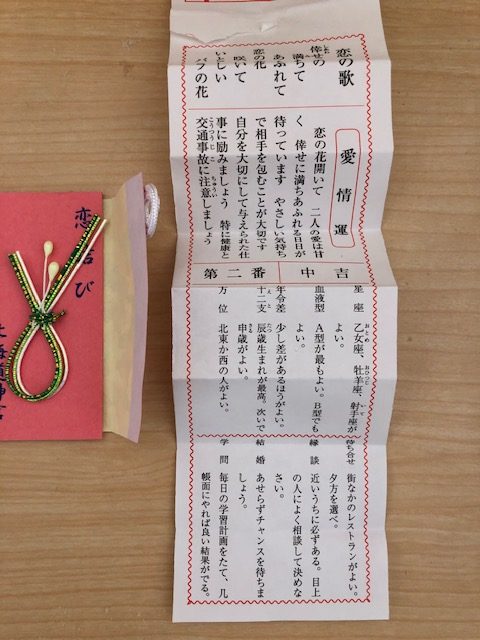 恋の歌
倖せの
満ちて
あふれて
恋の花
咲いて
いとしい
バラの花
愛情運
恋の花開いて 二人の愛は甘
く 倖せに満ちあふれる日日が
待っています やさしい気持ち
で相手を包むことが大切です
自分を大切にして与えられた仕
事に励みましょう 特に健康と
交通事故に注意しましょう
第二番 中吉
星座 乙女座、牡羊座、射手座が
よい。
血液型 A型が最もよい。B型でも
よい。
年令差 少し差があるほうがよい。
十二支 辰歳生まれが最高。次いで
申歳がよい。
方位 北東か西の人がよい。
待ち合せ 街なかのレストランがよい。
夕方を選べ。
縁談 近いうちに必ずある。目上
の人によく相談して決めな
さい。
結婚 あせらずチャンスを待ちま
しょう。
学問 毎日の学習計画をたて、几
帳面にやれば良い結果がでる。
恋結び
海道神宮